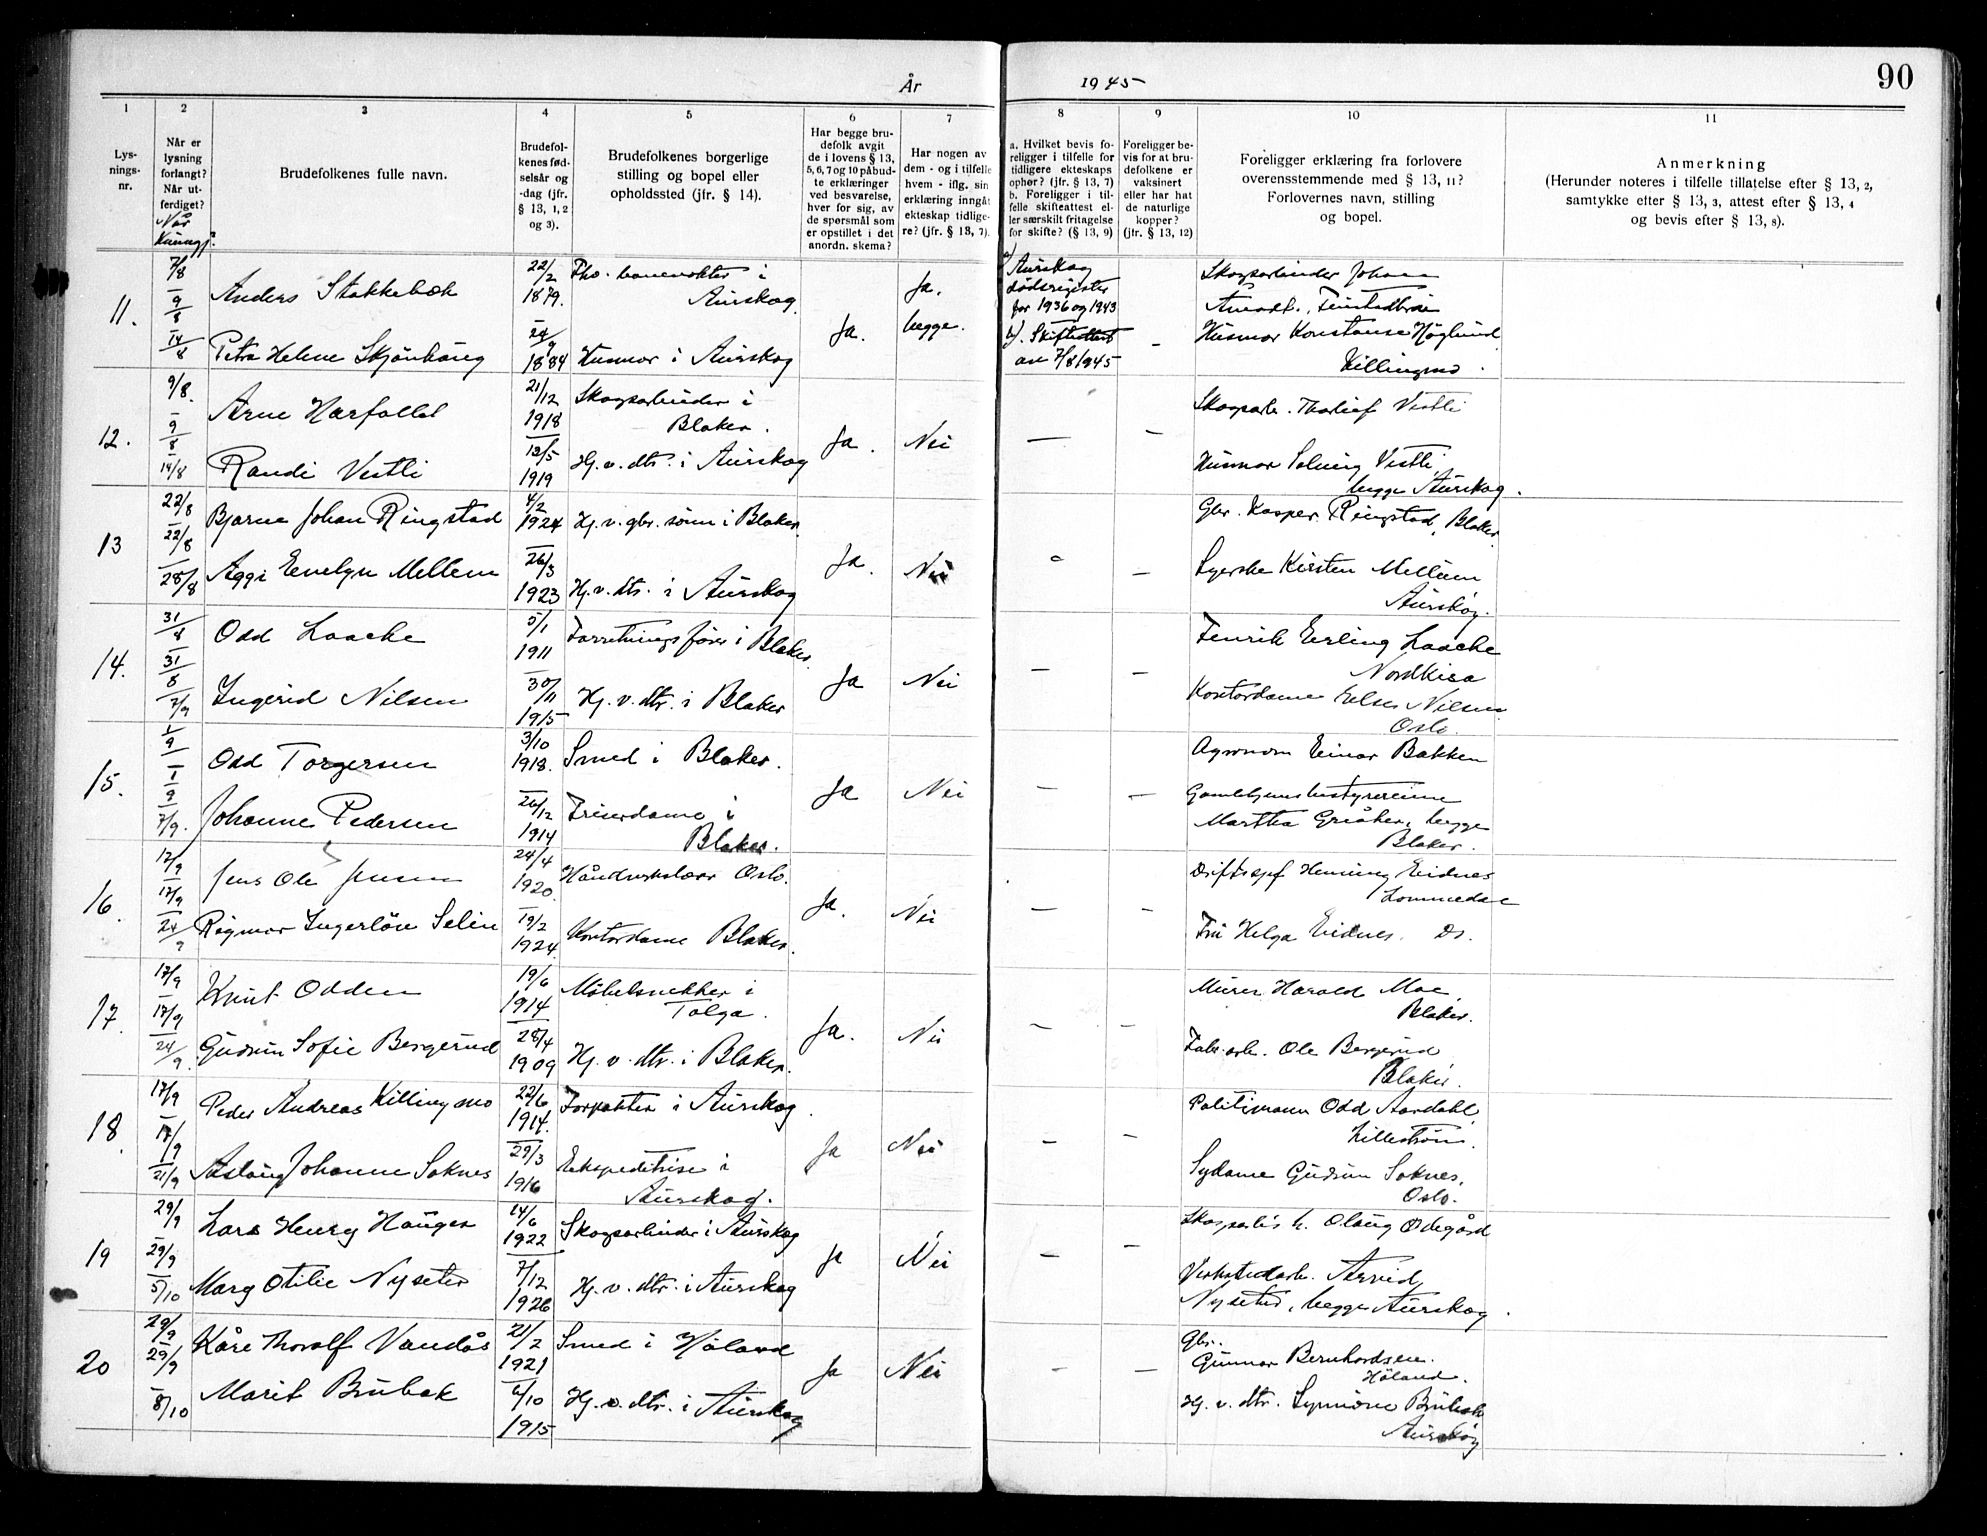 År 1945
90
1
2
3
4
5
6
7
8
9
10
11
Lys-
nings-
nr.
Når er
lysning
forlangt?
Når ut-
ferdiget?
Når
Kunngj.
Brudefolkenes fulle navn.
Brudefol-
kenes fød-
selsår og
-dag (jfr.
§ 13, 1, 2
og 3).
Brudefolkenes borgerlige
stilling og bopel eller
opholdssted (jfr. § 14).
Har begge bru-
defolk avgit
de i lovens § 13,
5, 6, 7 og 10 påbud-
te erklæringer
ved besvarelse,
hver for sig, av
de spørsmål som
er opstillet i det
anordn. skema?
Har nogen av
dem - og i tilfelle
hvem - iflg. sin
erklæring inngåt
ekteskap tidlige-
re? (jfr. § 13, 7).
a. Hvilket bevis fo-
religger i tilfelle for
tidligere ekteskaps
ophør? (jfr. § 13, 7)
b. Foreligger i til-
felle skifteattest el-
ler særskilt fritagelse
for skifte? (§ 13, 9)
Foreligger be-
vis for at bru-
defolkene er
vaksinert
eller har hat
de naturlige
kopper?
(jfr. § 13, 12)
Foreligger erklæring fra forlovere
overensstemmende med § 13, 11?
Forlovernes navn, stilling
og bopel.
Anmerkning
(Herunder noteres i tilfelle tillatelse efter § 13, 2,
samtykke efter § 13, 3, attest efter § 13, 4
og bevis efter § 13, 8).
11.
7/8
9/8
14/8
Anders Stakkebæk
22/2
1879.
Fhv. banevokter i
Aurskog
Petra Helene Skjønhaug
24/9
1884
Husmor i Aurskog
Ja.
Ja.
begge.
a) Aurskog
dødsregister
for 1936 og 1943
b). Skifteattest
av 7/8 1945
–
Skogsarbeider Johan
Husmor Konstanse Høglund
Killingmo.
12.
9/8.
9/8
14/8
Arne Harfallet
21/12
1918
Skogsarbeider i
Blaker.
Randi Vestli
12/5
1919
Hj. v. dtr. i Aurskog
Ja.
Nei
–
–
Skogsarb. Thorleif Vestli
Husmor Solveig Vestli,
begge Aurskog.
13
22/8
22/8
28/8
Bjarne Johan Ringstad
4/2
1924
Hj. v. gbr. sønn i Blaker.
Aggi Evelyn Mellem
26/3
1923
Hj. v. dtr. i Aurskog
Ja.
Nei
–
–
Gbr. Kasper Ringstad, Blaker.
Syerske Kirsten Mellem
Aurskog.
14.
31/8
31/8
7/9
Odd Laache
5/1
1911
Forretningsfører i Blaker.
Ingerid Nilsen
30/11
1915
Hj. v. dtr. i Blaker
Ja
Nei
–
–
Fenrik Erling Laache
Nordkisa
Kontordame Else Nilsen
Oslo.
15.
1/9
1/9
7/9.
Odd Torgersen
3/10
1918.
Smed i Blaker.
Johanne Pedersen
26/12
1914
Friserdame i
Blaker.
Ja
Nei
–
–
Agronom Einar Bakken
Gamlehjemsbestyrerinne
Martha Griåker, begge
Blaker.
16.
17/9
17/9
24/9
Jens Ole Jensen
24/4
1920.
Håndverkslærer Oslo.
Ragmor Ingerløv Selin
19/2
1924.
Kontordame Blaker.
Ja.
Nei
–
–
Driftssjef Henning Eidnes
Lommedal
Fru Helga Eidnes. Do.
17.
17/9
17/9
24/9.
Knut Odden
19/6
1914
Møbelsnekker i
Tolga.
Gudrun Sofie Bergerud
28/4
1909
Hj. v. dtr. i Blaker.
Ja.
Nei
–
–
Murer Harald Moe,
Blaker.
Fabr. arb. Ole Bergerud
Blaker.
18.
17/9
17/9
21/9
Peder Andreas Killingmo
22/6
1914.
Forpakter i Aurskog.
Aslaug Johanne Soknes
29/3
1916
Ekspeditrise i
Aurskog.
Ja
Nei
–
–
Politimann Odd Aardahl
Lillestrøm.
Sydame Gudrun Soknes,
Oslo.
19
29/9
29/9
5/10
Lars Henry Hauger
14/6
1922
Skogsarbeider i Aurskog
Mary Otilie Nyseter
7/12
1926
Hj. v. dtr. i Aurskog
Ja
Nei
–
–
Olaug Ødegård
Verkstedarb. Arvid
Nyseter, begge Aurskog.
20
29/9
29/9
8/10
Kåre Thorolf Vandås
21/2
1921
Smed i Høland
Marit Brubak
6/10
1915
Hj. v. dtr. i Aurskog
Ja
Nei
–
–
Gbr.
Gunnar Bernhardsen.
Høland.
Hj. v. dtr. Synnøve Brubak
Aurskog